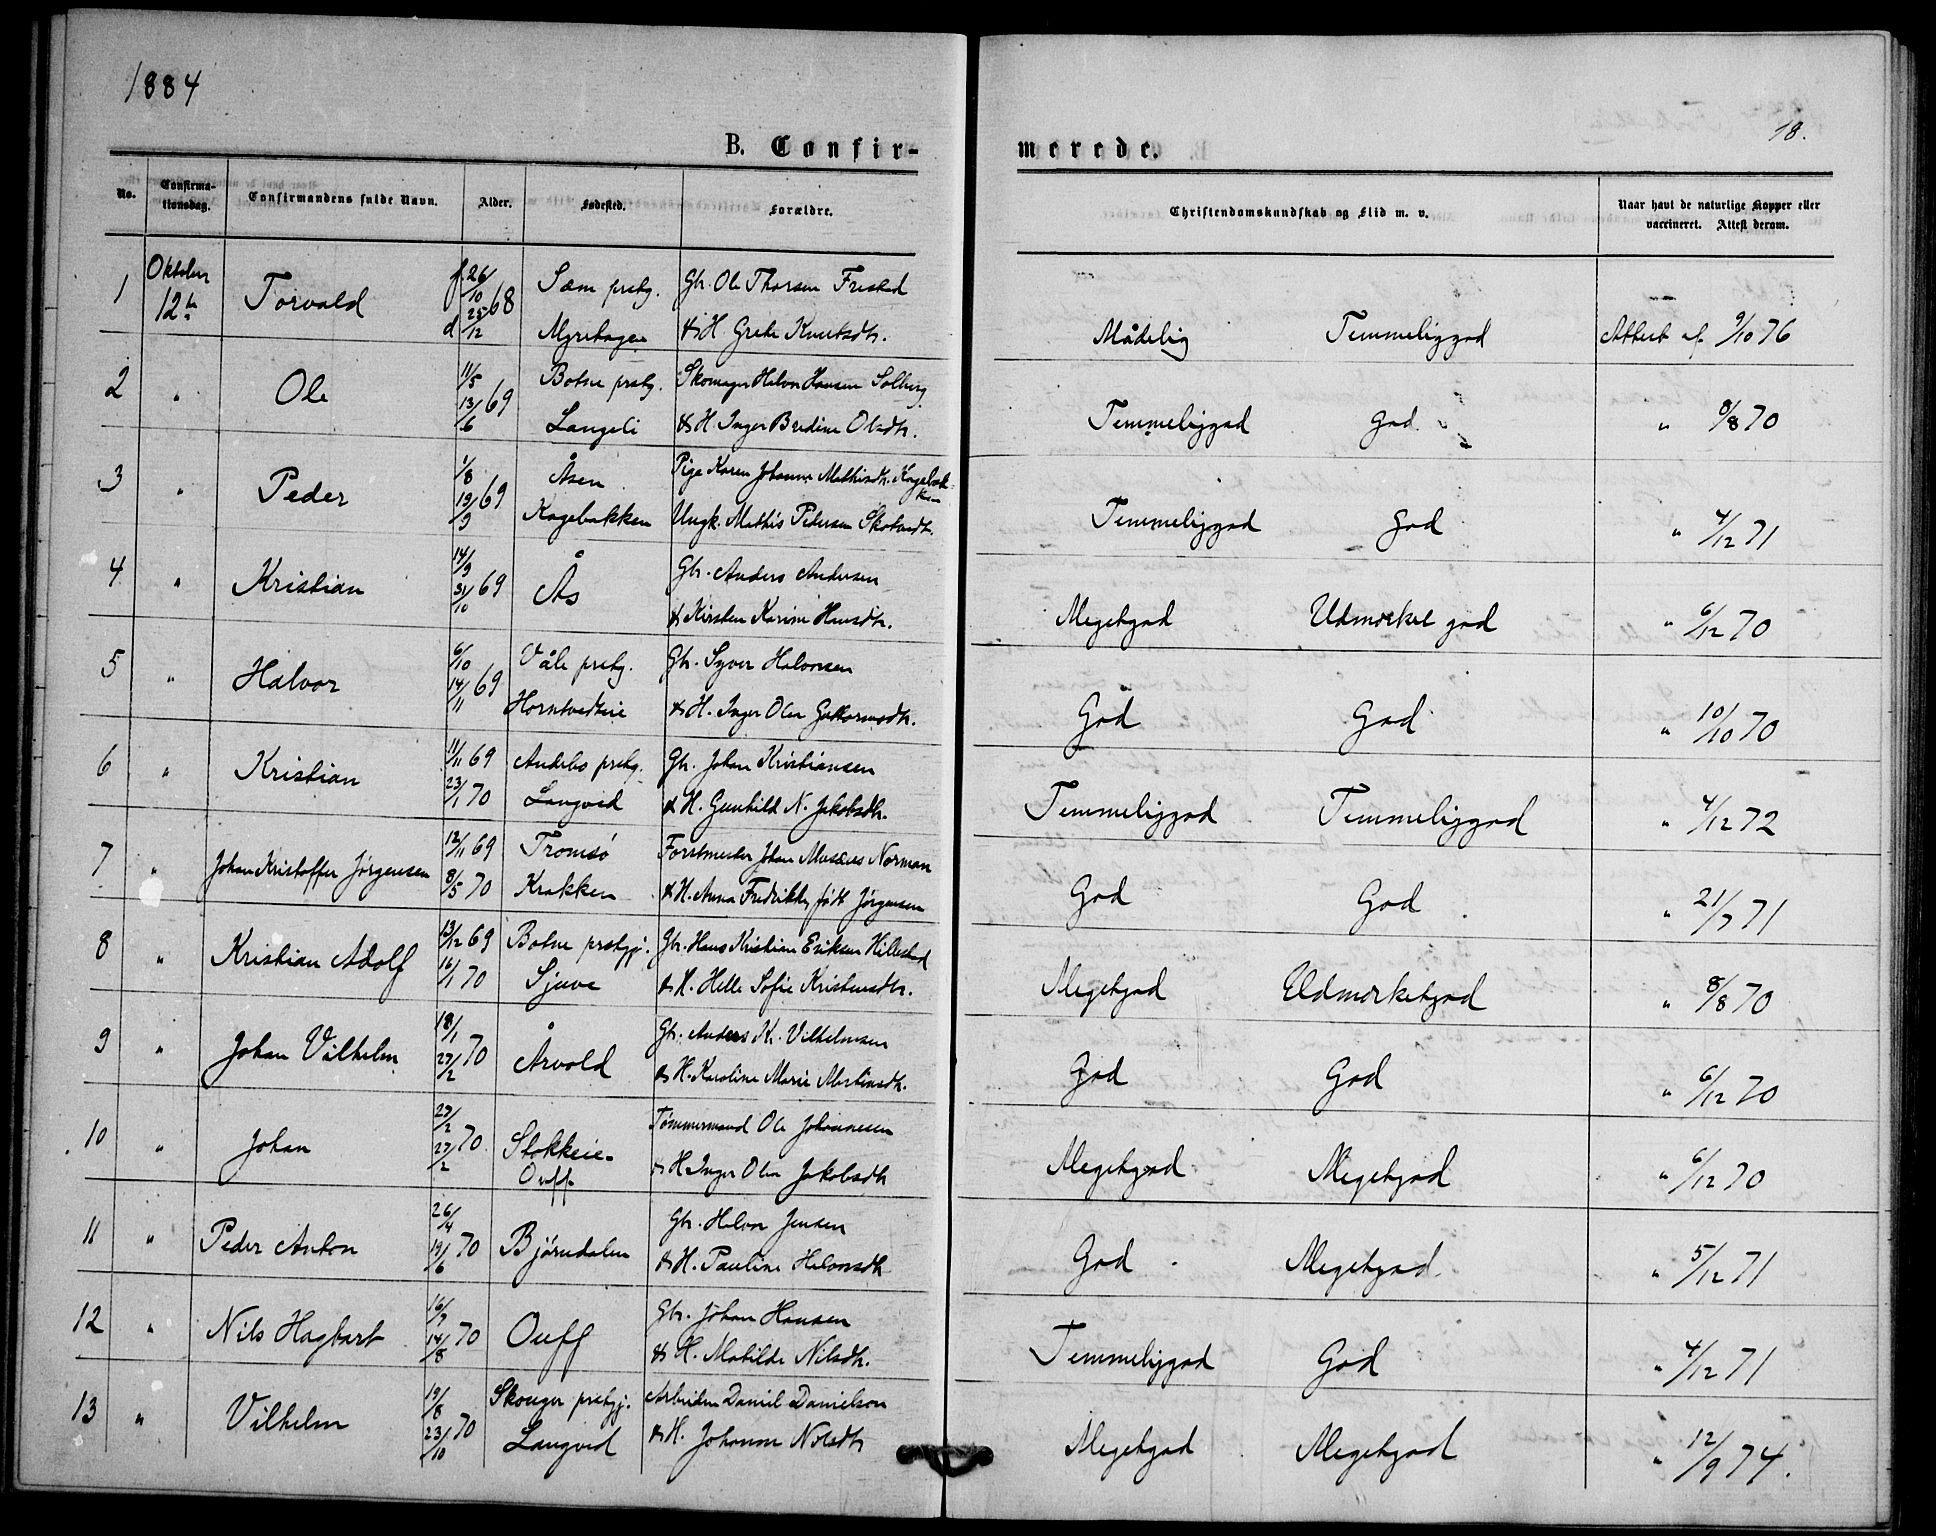 1884
18.
B. Confirmerede.
No. Confirmationsdag. Confirmandens fulde Navn. Alder. Fødested. Forældre. Christendomskundskab og Flid m. v. Naar havt de naturlige Kopper eller vaccineret. Attest derom.
1 Oktober 12te Torvald f 26/10 68 Sæm prstg. Gbr. Ole Thorsen Frested
d 25/12 Myrehagen & H. Grete Knutsdtr. Mådelig Temmeliggod Attest af 9/10 76
2 " Ole 11/5 69 Botne prstg. Skomager Halvor Hansen Solberg
13/6 Langeli & H. Inger Bredine Olsdtr. Temmeliggod God " 8/8 70
3 " Peder 1/8 69 Åsen Pige Karen Johanne Mathisdtr. Kagebakken
19/9 Kagebakken Ungk. Mathis Pedersen Temmeliggod God " 4/12 71
4 " Kristian 14/9 69 Ås Gbr. Anders Andersen
31/10 & Kirsten Karine Hansdtr. Megetgod Udmerket god " 6/12 70
5 " Halvor 6/10 69 Våle prstg. Gbr. Syver Halvorsen
14/11 Horntvedteie & H. Inger Olea Guttormsdtr. God God " 10/10 70
6 " Kristian 11/11 69 Andebo prstg. Gbr. Johan Kristiansen
23/1 70 Langved & H. Gunhild N. Jakobsdtr. Temmeliggod Temmeliggod " 4/12 72
7 " Johan Kristoffer Jørgensen 12/11 69 Tromsö Forstmester Johan Musæus Norman
8/5 70 Krakken & H. Anna Fredrikke, født Jørgensen God God " 21/7 71
8 " Kristian Adolf 13/12 69 Botne prstgj. Gbr. Hans Kristian Eriksen Hillestad
16/1 70 Sjuve & H. Helle Sofie Kristensdtr. Megetgod Udmerketgod " 8/8 70
9 " Johan Vilhelm 18/1 70 Årvold Gbr. Anders K. Vilhelmsen
27/2 & H. Karoline Marie Martinsdtr. God God " 6/12 70
10 " Johan 70 Stokkeie- Tømmermand Ole Johannesen
27/2 Ouff & H. Inger Olea Jakobsdtr. Megetgod Megetgod " 6/12 70
11 " Peder Anton 26/4 70 Bjørndalen Gbr. Halvor Jensen
19/6 & H. Pauline Halvorsdtr. God Megetgod " 5/12 71
12 " Nils Hagbart 16/7 70 Ouff Gbr. Johan Hansen
14/8 & H. Matilde Nilsdtr. Temmeliggod God " 4/12 71
13 " Vilhelm 19/8 70 Skouger prstgj. Arbeider Daniel Danielson
23/10 Langved & H. Johanne Nilsdtr. Megetgod Megetgod " 12/9 74.